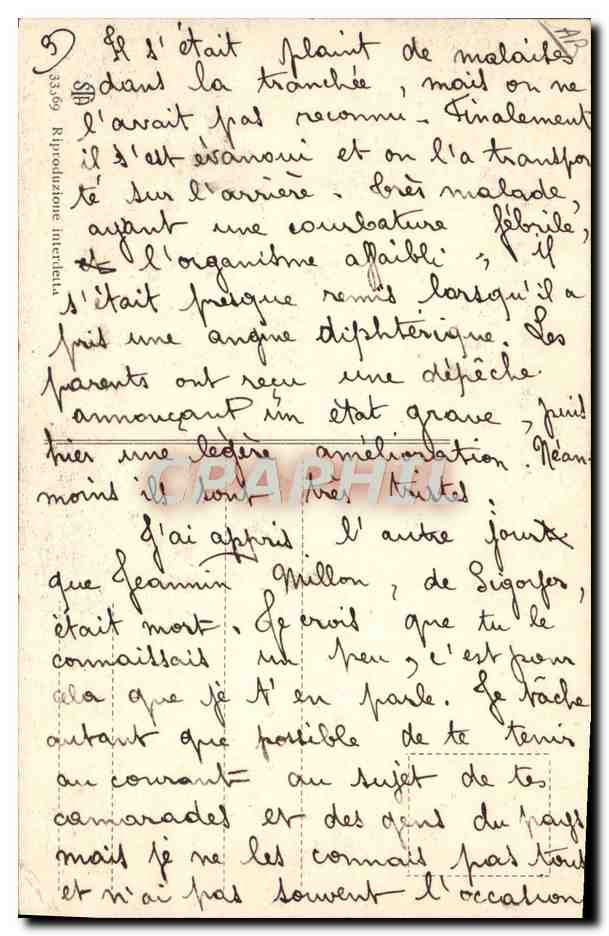 3)
AP
Il s'était plaint de malaises
dans la tranchée, mais on ne
l'avait pas reconnu - Finalement
il s'est évanoui et on l'a transpor
té sur l'arrière - très malade,
ayant une courbature fébrile,
l'organisme affaibli, Il
s'était presque remis lorsqu'il a
pris une angine diphtérique. Les
parents ont reçu une dépêche
annonçant un état grave, puis
hier une légère amélioration. Néan-
moins ils sont très tristes.
J'ai appris l'autre jour
que Jeannin Millon, de
était mort. Je crois que tu le
connaissais un peu, c'est pour
cela que je t'en parle. Je tâche
autant que possible de te tenir
au courant au sujet de tes
camarades et des gens du pays
mais je ne les connais pas tous
et n'ai pas souvent l'occasion
33369 Riproduzione interdetta
STA
CPAPHIL